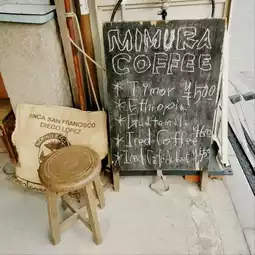 MIMURA
COFFEE
* Timor ¥500
* Ethiopia
* Guatemala
* Iced Coffee
* Iced
FINCA SAN FRANCISCO
DIEGO LOPEZ